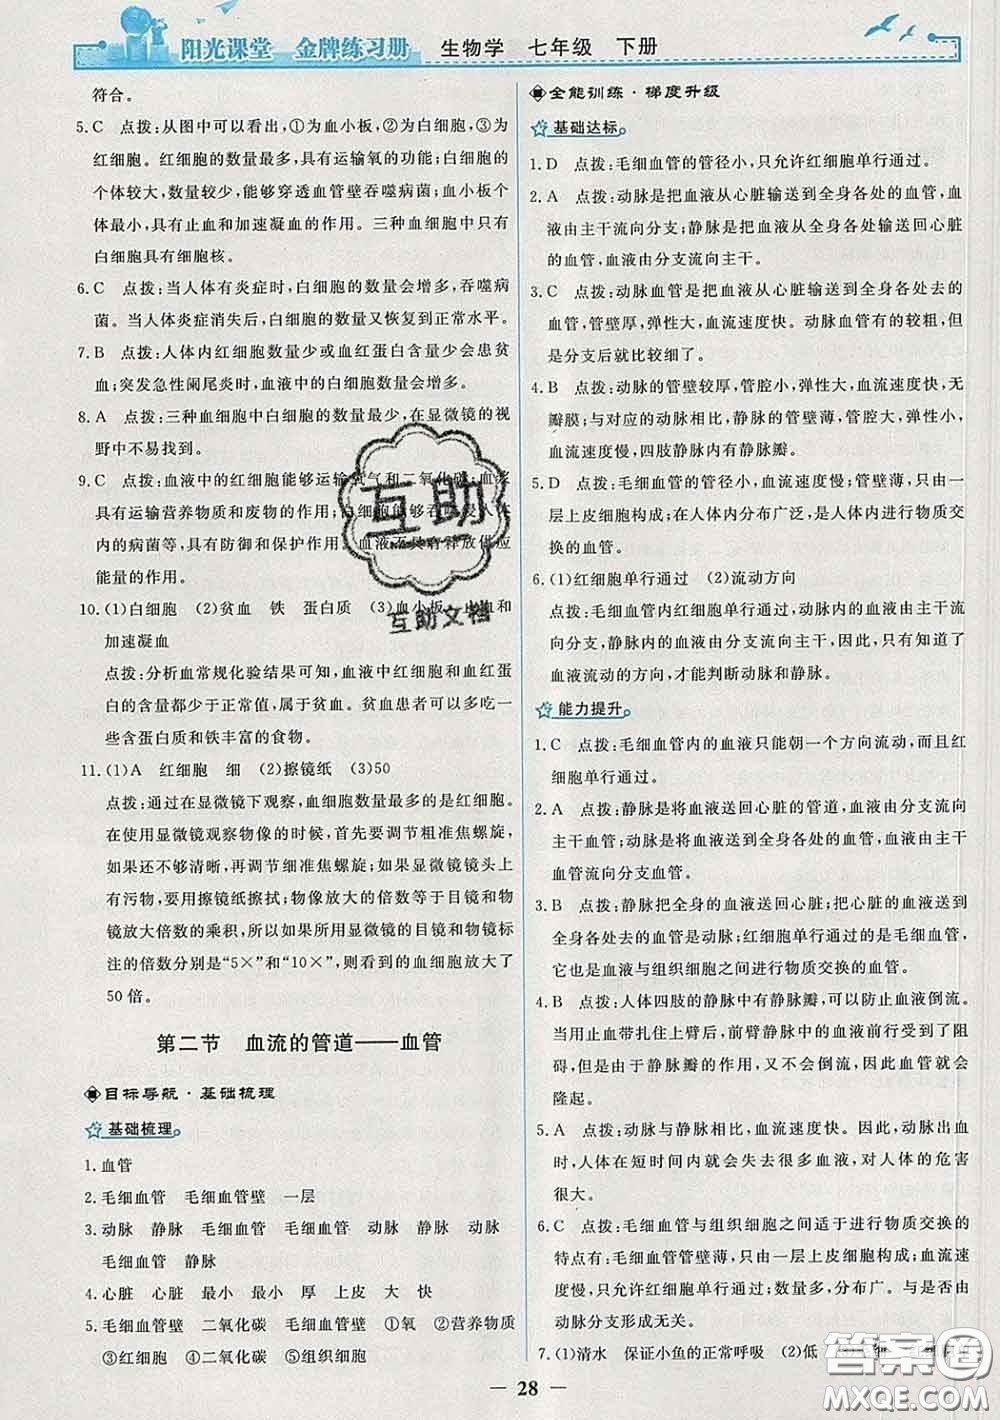 阳光课堂 金牌练习册 生物学 七年级 下册
符合。
5.C 点拨:从图中可以看出,①为血小板,②为白细胞,③为
红细胞。红细胞的数量最多,具有运输氧的功能;白细胞的
个体较大,数量较少,能够穿透血管壁吞噬病菌;血小板的
个体最小,具有止血和加速凝血的作用。三种血细胞中只有
白细胞具有细胞核。
6.C 点拨:当人体有炎症时,白细胞的数量会增多,吞噬病
菌。当人体炎症消失后,白细胞的数量又恢复到正常水平。
7.B 点拨:人体内红细胞数量少或血红蛋白含量少会患贫
血;突发急性阑尾炎时,血液中的白细胞数量会增多。
8.A 点拨:三种血细胞中白细胞的数量最少,在显微镜的视
野中不易找到。
9.C 点拨:血液中的红细胞能够运输氧气和二氧化碳;血浆
具有运输营养物质和废物的作用;白细胞能够吞噬侵入人体
内的病菌等,具有防御和保护作用。血液不具有释放供应
能量的作用。
10.(1)白细胞 (2)贫血 铁 蛋白质 (3)血小板 止血和
加速凝血
点拨:分析血常规化验结果可知,血液中红细胞和血红蛋
白的含量都少于正常值,属于贫血。贫血患者可以多吃一
些含蛋白质和铁丰富的食物。
11.(1)A 红细胞 细 (2)擦镜纸 (3)50
点拨:通过在显微镜下观察,血细胞数量最多的是红细胞。
在使用显微镜观察物像的时候,首先要调节粗准焦螺旋,
如果还不够清晰,再调节细准焦螺旋;如果显微镜镜头上
有污物,要用擦镜纸擦拭;物像放大的倍数等于目镜和物
镜放大倍数的乘积,所以如果所用显微镜的目镜和物镜标
注的倍数分别是“5×”和“10×”,则看到的血细胞放大了
50倍。
第二节 血流的管道——血管
目标导航·基础梳理
基础梳理
1.血管
2.毛细血管 毛细血管壁 一层
3.动脉 静脉 毛细血管 毛细血管 动脉 静脉 动脉
毛细血管 静脉
4.心脏 心脏 最小 最小 厚 上皮 大 快
5.毛细血管壁 二氧化碳 毛细血管壁 ①氧 ②营养物质
③红细胞 ④二氧化碳 ⑤组织细胞
全能训练·梯度升级
基础达标
1.D 点拨:毛细血管的管径小,只允许红细胞单行通过。
2.A 点拨:动脉是把血液从心脏输送到全身各处的血管,血
液由主干流向分支;静脉是把血液从全身各处输送回心脏
的血管,血液由分支流向主干。
3.C 点拨:动脉血管是把血液从心脏输送到全身各处去的
血管,管壁厚,弹性大,血流速度快。动脉血管有的较粗,但
是分支后就比较细了。
4.B 点拨:动脉的管壁较厚,管腔小,弹性大,血流速度快,无
瓣膜;与对应的动脉相比,静脉的管壁薄,管腔大,弹性小,
血流速度慢,四肢静脉内有静脉瓣。
5.D 点拨:毛细血管内的血流速度慢;管壁极薄,只由一
层上皮细胞构成;在人体内分布广泛,是人体内进行物质交
换的血管。
6.(1)红细胞单行通过 (2)流动方向
点拨:毛细血管内红细胞单行通过;动脉内的血液从主干
流向分支,静脉内的血液由分支流向主干,因此,只有知道了
血液流动的方向,才能判断动脉和静脉。
能力提升
1.C 点拨:毛细血管内的血液只能朝一个方向流动,而且红
细胞单行通过。
2.A 点拨:静脉是将血液送回心脏的管道,血液由分支流向
主干血管;动脉是将血液送到全身各处的血管,血液由主干
血管流向分支血管。
3.B 点拨:静脉把全身的血液送回心脏;把心脏的血液送到
全身各处去的血管是动脉;红细胞单行通过的是毛细血管,
它也是血液与组织细胞之间进行物质交换的血管。
4.B 点拨:人体四肢的静脉中有静脉瓣,可以防止血液倒流。
当用止血带扎住上臂后,前臂静脉中的血液流动受到了阻
碍,但是由于静脉瓣的作用,又不会倒流,因此血管就会
隆起。
5.A 点拨:动脉与静脉相比,血流速度快。因此,动脉出血
时,人体在短时间内就会失去很多血液,对人体的危害
很大。
6.C 点拨:毛细血管与组织细胞之间适于进行物质交换的
特点有:毛细血管管壁薄,只由一层上皮细胞构成;血流速
度慢,只允许红细胞单行通过;数量多,分布广。与是否由
动脉分支形成无关。
7.(1)清水 保证小鱼的正常呼吸 (2)低
28
互助
互助文档
答案圈
MXQE.COM